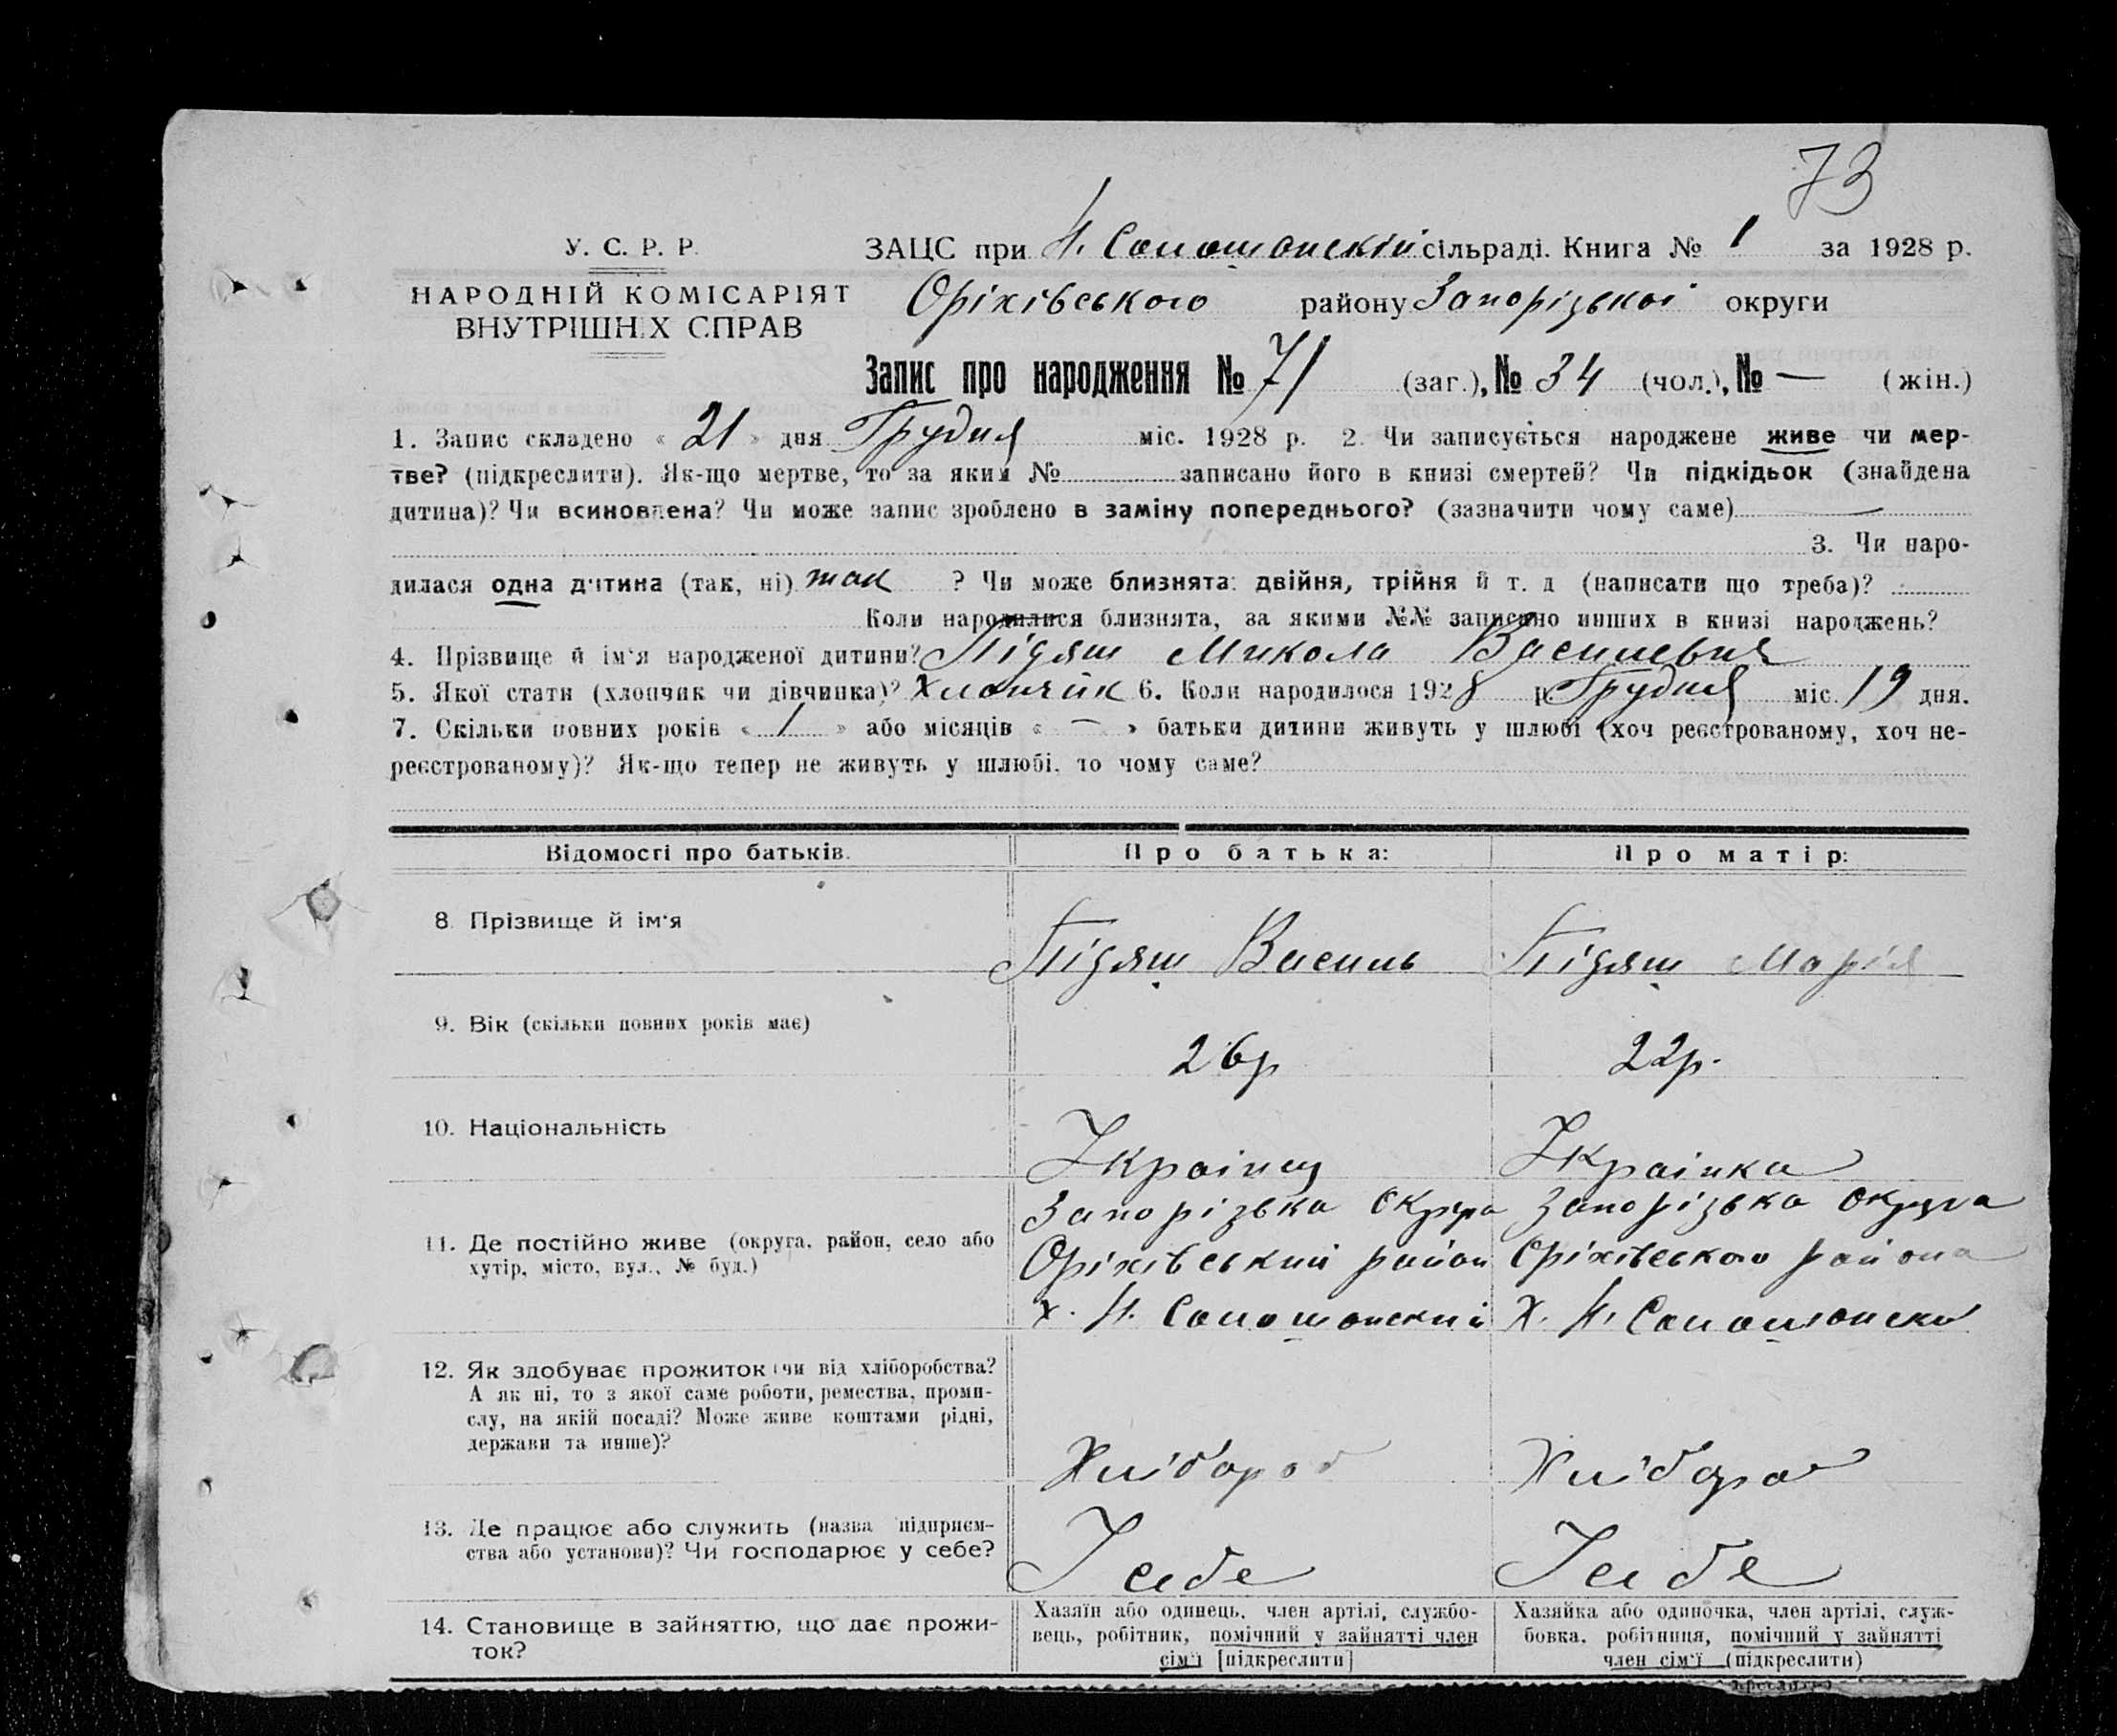 73
У. С. Р. Р.
НАРОДНІЙ КОМІСАРІЯТ
ВНУТРІШНІХ СПРАВ
ЗАЦС при Н. сільраді. Книга № 1 за 1928 р.
Оріхівського району Запорізькоі округи
Запис про народження № 71 (заг.), № 34 (чол.), № — (жін.)
1. Запис складено « 21 » дня Грудня міс. 1928 р. 2. Чи записується народжене живе чи мер-
тве? (підкреслити). Як-що мертве, то за яким № записано його в книзі смертей? Чи підкідьок (знайдена
дитина)? Чи всиновлена? Чи може запис зроблено в заміну попереднього? (зазначити чому саме) —
3. Чи наро-
дилася одна дитина (так, ні) так ? Чи може близнята: двійня, трійня й т. д (написати що треба)?
Коли народилися близнята, за якими №№ записано инших в книзі народжень?
4. Прізвище й ім'я народженої дитини? Підяш Микола Васильевич
5. Якої стати (хлопчик чи дівчинка)? Хлопчик 6. Коли народилося 1928 р. Грудня міс. 19 дня.
7. Скільки повних років « 1 » або місяців « — » батьки дитини живуть у шлюбі (хоч реєстрованому, хоч не-
реєстрованому)? Як-що тепер не живуть у шлюбі, то чому саме?
Відомості про батьків. Про батька: Про матір:
8. Прізвище й ім'я Підяш Василь Підяш Марія
9. Вік (скільки повних років має) 26р 22р.
10. Національність Украінец Украінка
11. Де постійно живе (округа, район, село або
хутір, місто, вул., № буд.)
Запорізька округа
Оріхівський район
х. Н.
Запорізька округа
Оріхівського района
х. Н.
12. Як здобуває прожиток (чи від хліборобства?
А як ні, то з якої саме роботи, ремества, проми-
слу, на якій посаді? Може живе коштами рідні,
держави та инше)?
Хлібороб Хлібороб
13. Де працює або служить (назва підприєм-
ства або установи)? Чи господарює у себе?
У себе У себе
14. Становище в зайняттю, що дає прожи-
ток?
Хазяїн або одинець, член артілі, службо-
вець, робітник, помічний у зайнятті член
сім'ї [підкреслити]
Хазяйка або одиночка, член артілі, служ-
бовка, робітниця, помічний у зайнятті
член сім'ї (підкреслити)